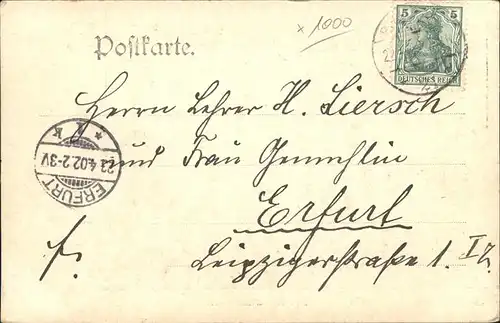 × 1000
5
DEUTSCHES REICH
Postkarte.
Herrn Lehrer H. Liersch
und Frau Gemahlin
Erfurt
Leipzigerstraße 1. I
fr.
ERFURT
23.4.02.2-3V
* k